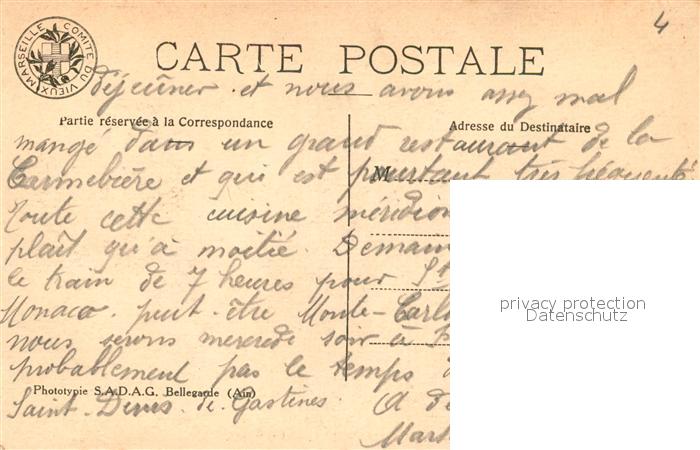 4
MARSEILLE COMITÉ DU VIEUX
CARTE POSTALE
déjeûner et nous avons assez mal
Partie réservée à la Correspondance
Adresse du Destinataire
mangé dans un grand restaurant de la
Cannebière et qui est pourtant très fréquenté
M
Toute cette cuisine méridion
plaît qu'à moitié. Demain
privacy protection
Datenschutz
le train de 7 heures pour St
Monaco peut-être Monte-Carlo
nous serons mercredi soir à
probablement pas le temps
Phototypie S.A.D.A.G. Bellegarde (Ain)
Saint-Denis-de-Gastines. A de
Mars